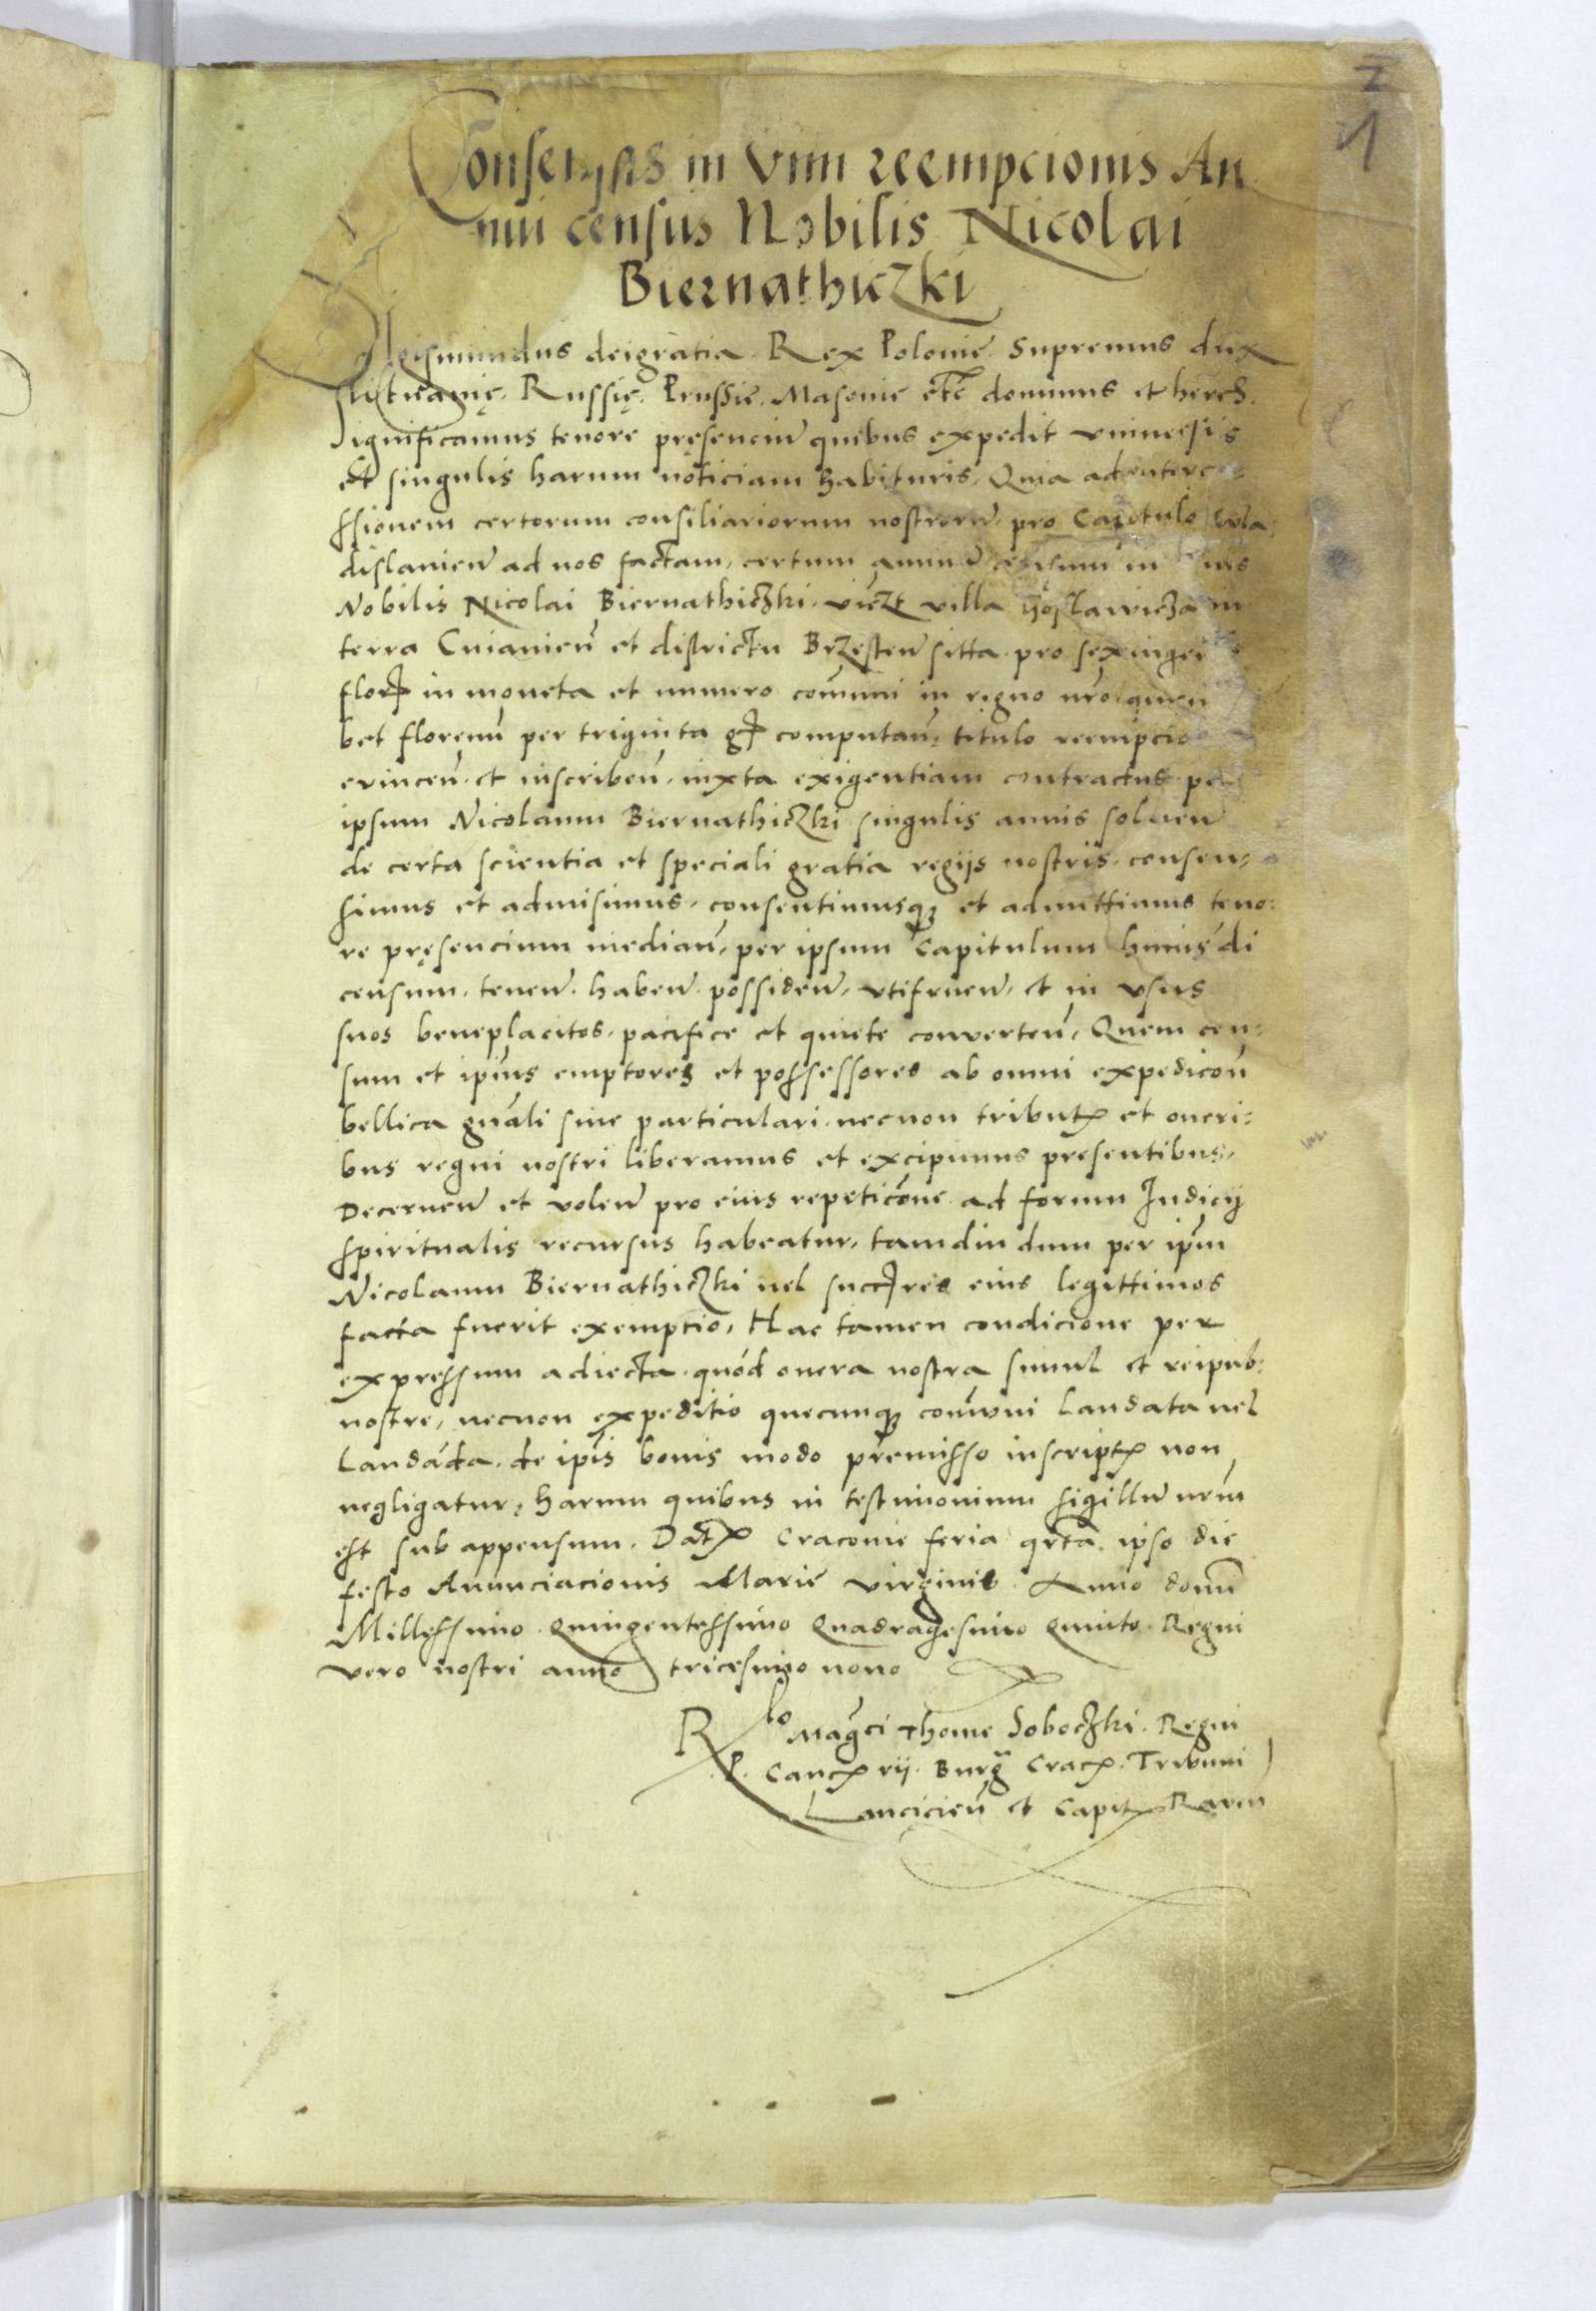 1
Consensus in vim reempcionis An
nui census Nobilis Nicolai
Biernathiczki
Sigismundus dei gratia Rex Polonie Supremus dux
Lithuanię, Russię, Prussie, Masouie etc̃ dominus et heres.
Significamus tenore pręsenciũ quibus expedit vniuersis
et singulis harum noticiam habituris, Quia ad interce-
ssionem certorum consiliariorum nostrorũ, pro Capitulo Wla
dislauieñ ad nos factam, certum annuũ censum in bonis
Nobilis Nicolai Biernathiczki, viczt villa in
terra Cuiauieñ et districtu Brzesteñ sitta pro sexingentis
flor in moneta et numero com̃uni in regno nr̃o quem
bet florenũ per triginta gr computañ: titulo reempcio
euinceñ et inscribeñ, iuxta exigentiam contractus per
ipsum Nicolaum Biernathiczki singulis annis solueñ
de certa scientia et speciali gratia regijs nostris, consen-
simus et admisimus, consentimusqʒ et admittimus teno:
re pręsencium mediañ, per ipsum Capitulum huiusdi
censum, teneñ, habeñ, possideñ, vtifrueñ, et in vsus
suos beneplacitos, pacifice et quiete conuerteñ, Quem cen:
sum et ip̃ius emptores et possessores ab omni expedicoñ
bellica gñali siue particulari, necnon tributꝭ et oneri:
bus regni nostri liberamus et excipimus presentibus,
Decerneñ et voleñ pro eius repeticõne ad forum Iudicij
spiritualis recursus habeatur, tamdiu dum per ip̃m
Nicolaum Biernathiczki uel succres eius legittimos
facta fuerit exemptio, Hac tamen condicione per
expressum adiecta, quod onera nostra simul et reipub:
nostre, necnon expeditio quecunqʒ com̃uni laudata uel
laudãda, de ip̃is bonis modo premisso inscriptꝭ non
negligatur, Harum quibus in testimonium sigillũ nr̃m
est sub appensum. Datꝭ Cracouie feria qrta ipso die
festo Annunciacionis Marie virginis. Anno domĩ
Millessimo Quingentessimo Quadragesimo Quinto Regni
vero nostri anno tricesimo nono
Rlo Mag̃ci Thome Soboczki Regni
P. Cancꝭrij. Burg̃ Cracꝭ. Tribuni
Lancicieñ et Capitꝭ Raueñ